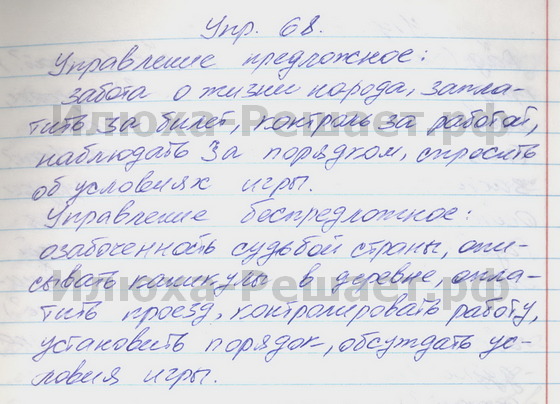 Упр. 68.
Управление предложное:
забота о жизни народа, запла-
тить за билет, контроль за работой,
наблюдать за порядком, спросить
об условиях игры.
Управление беспредложное:
озабоченность судьбой страны, опи-
сывать каникулы в деревне, опла-
тить проезд, контролировать работу,
установить порядок, обсуждать ус-
ловия игры.
Илюха-Решает.рф
Илюха-Решает.рф